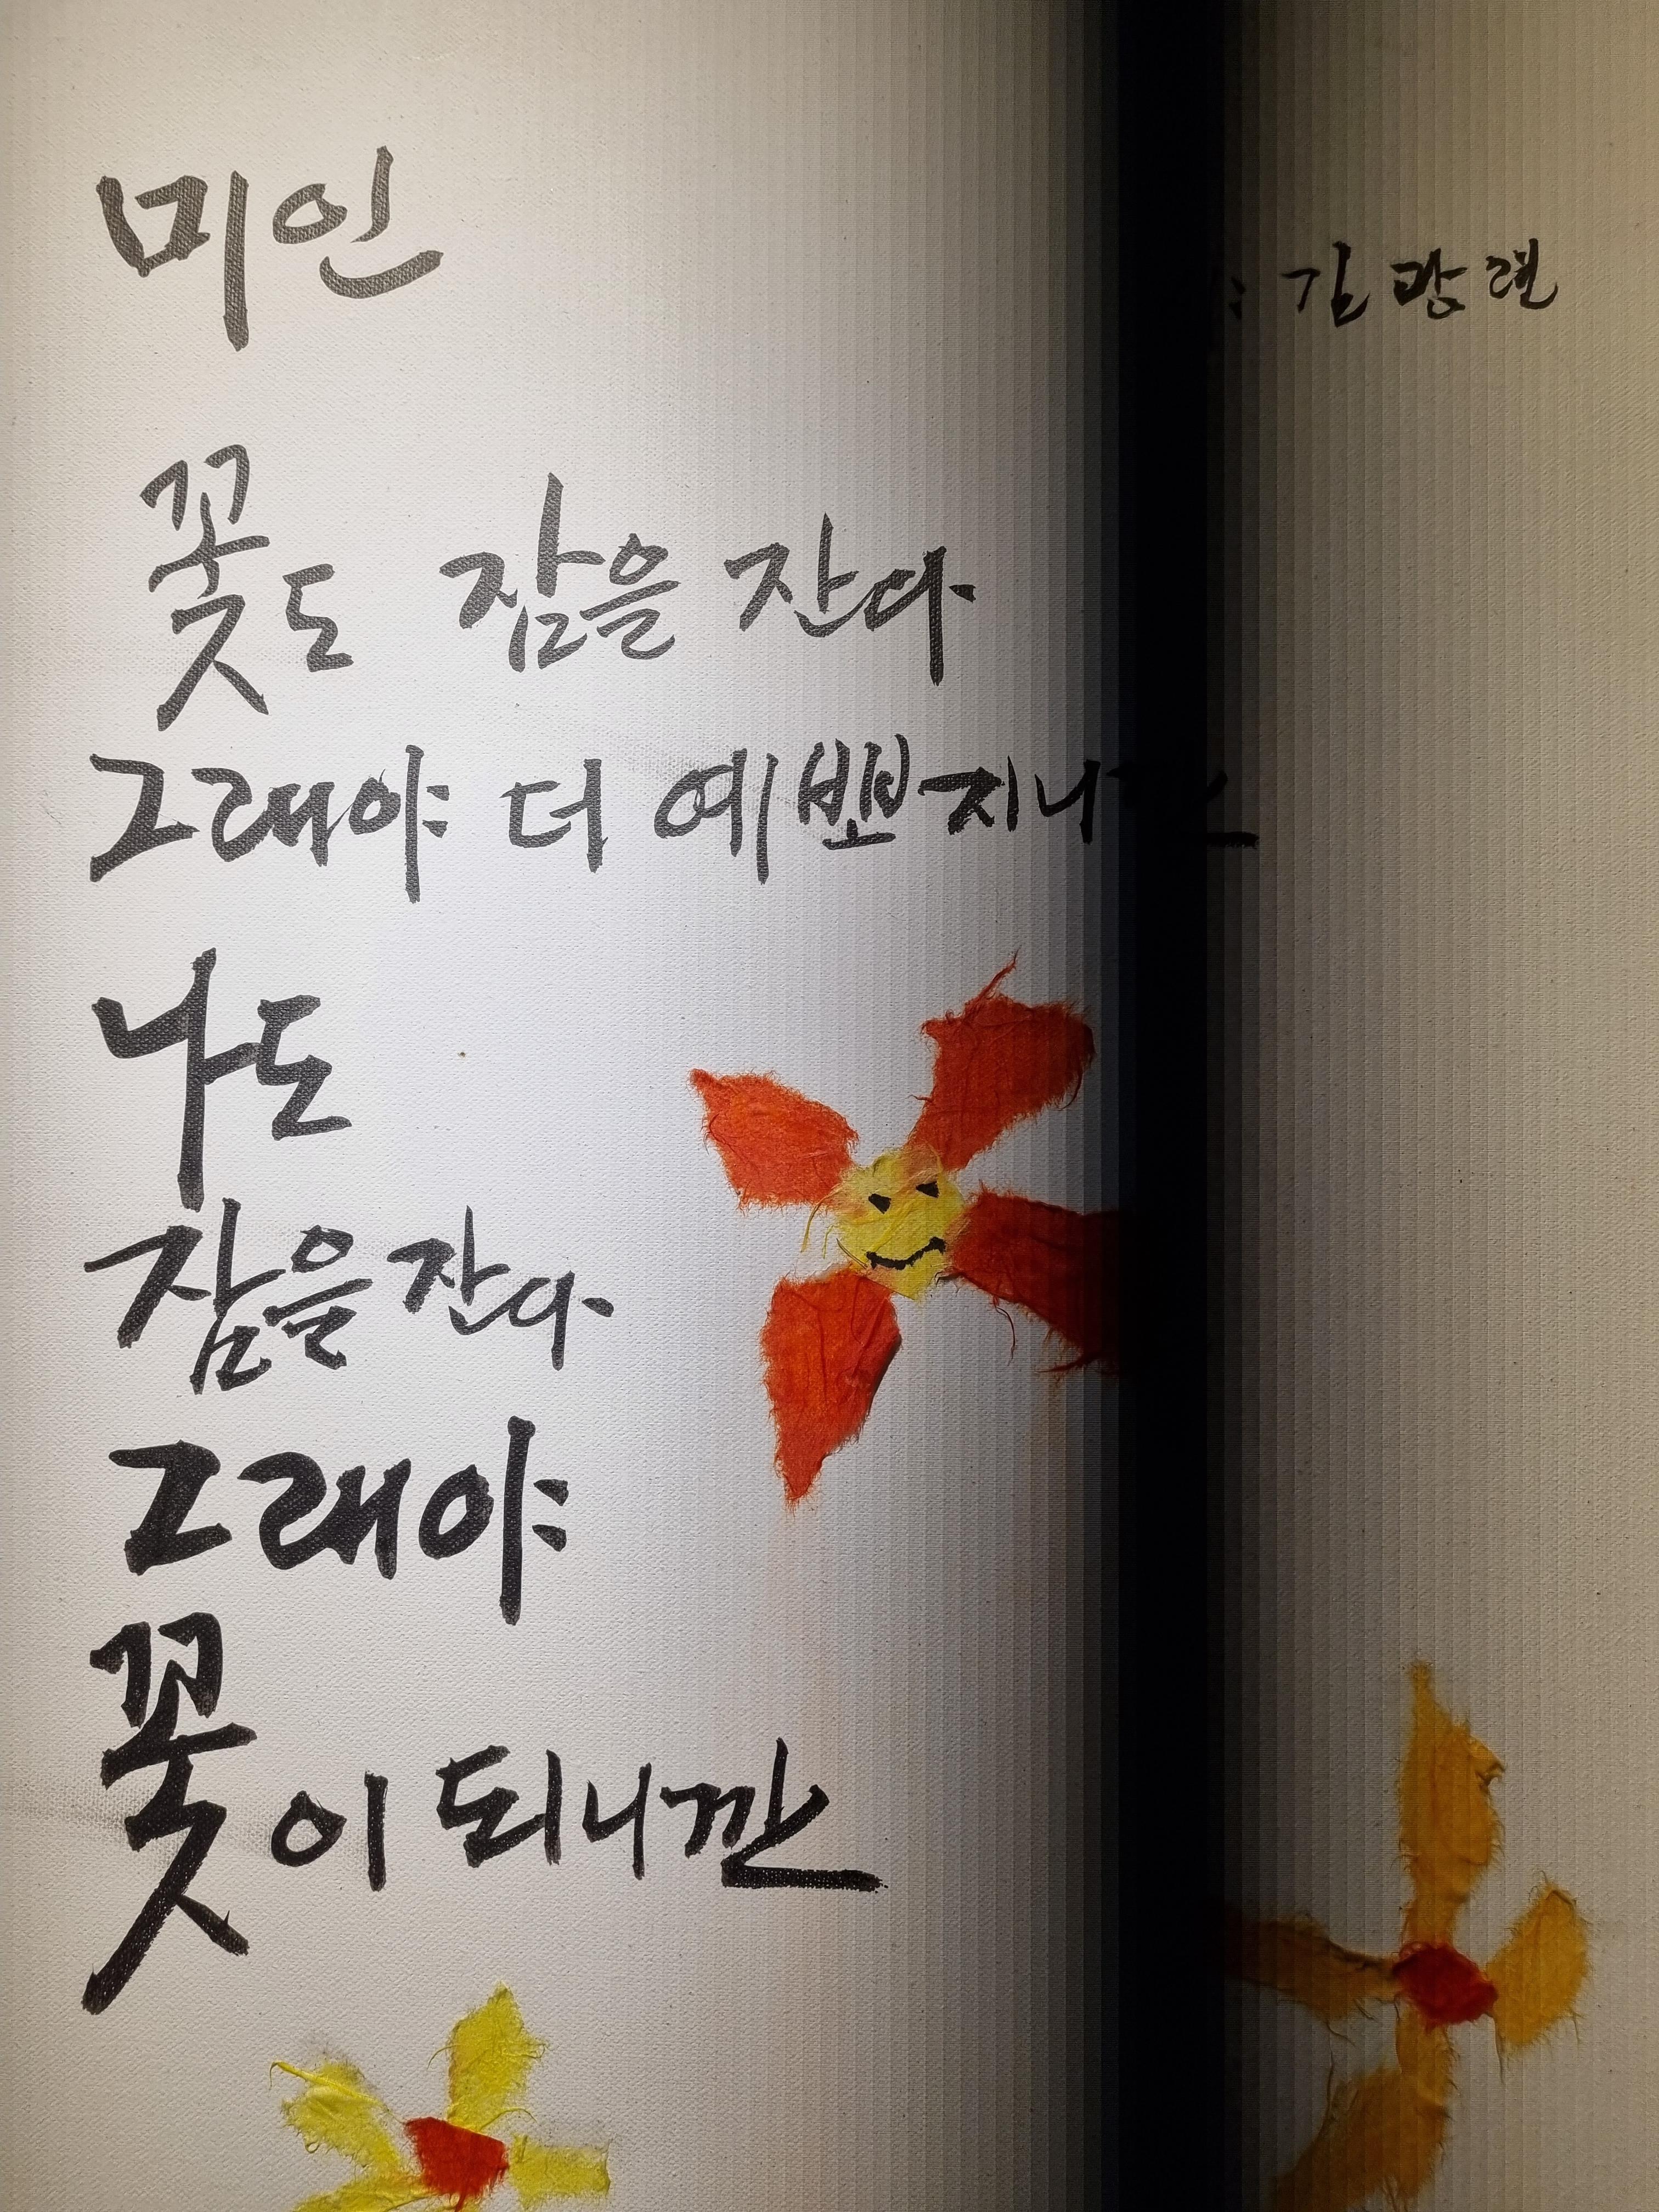 미인
: 김광련
꽃도 잠을 잔다
그래야 더 예뻐지니깐
나도
잠을 잔다
그래야
꽃이 되니깐